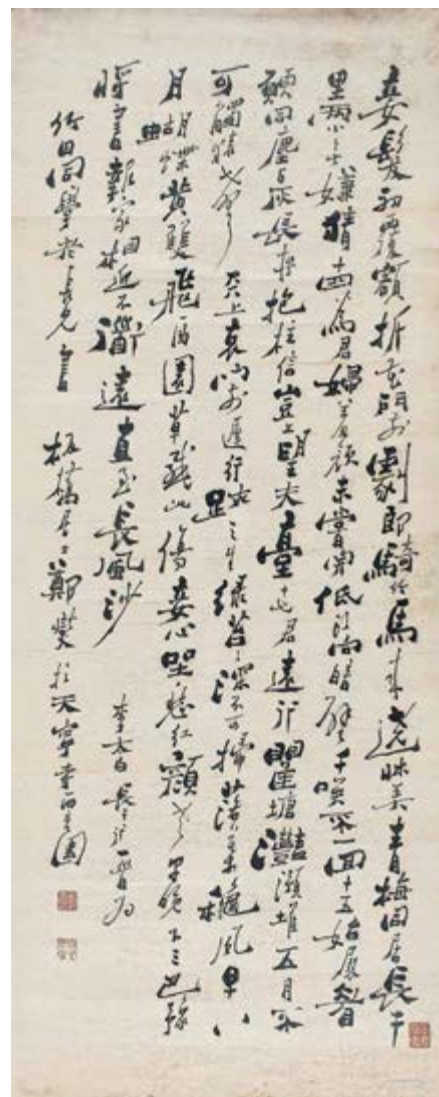 妾髮初覆額折花門前劇郎騎竹馬來遶牀美青梅同居長干
里兩小無嫌猜十四為君婦羞顏未嘗開低頭向暗壁千喚不一回十五始展眉
願同塵與灰長存抱柱信豈上望夫臺十六君遠行瞿塘灧澦堆五月不
可觸猿聲天上哀門前遲行跡一一生綠苔苔深不可掃落葉秋風早八
月胡蝶黃雙飛西園草感此傷妾心坐愁紅顏老早晚下三巴豫
將書報家相迎不道遠直至長風沙
李太白長干行
竹田同學老長兄 板橋居士鄭燮於天寧寺西園